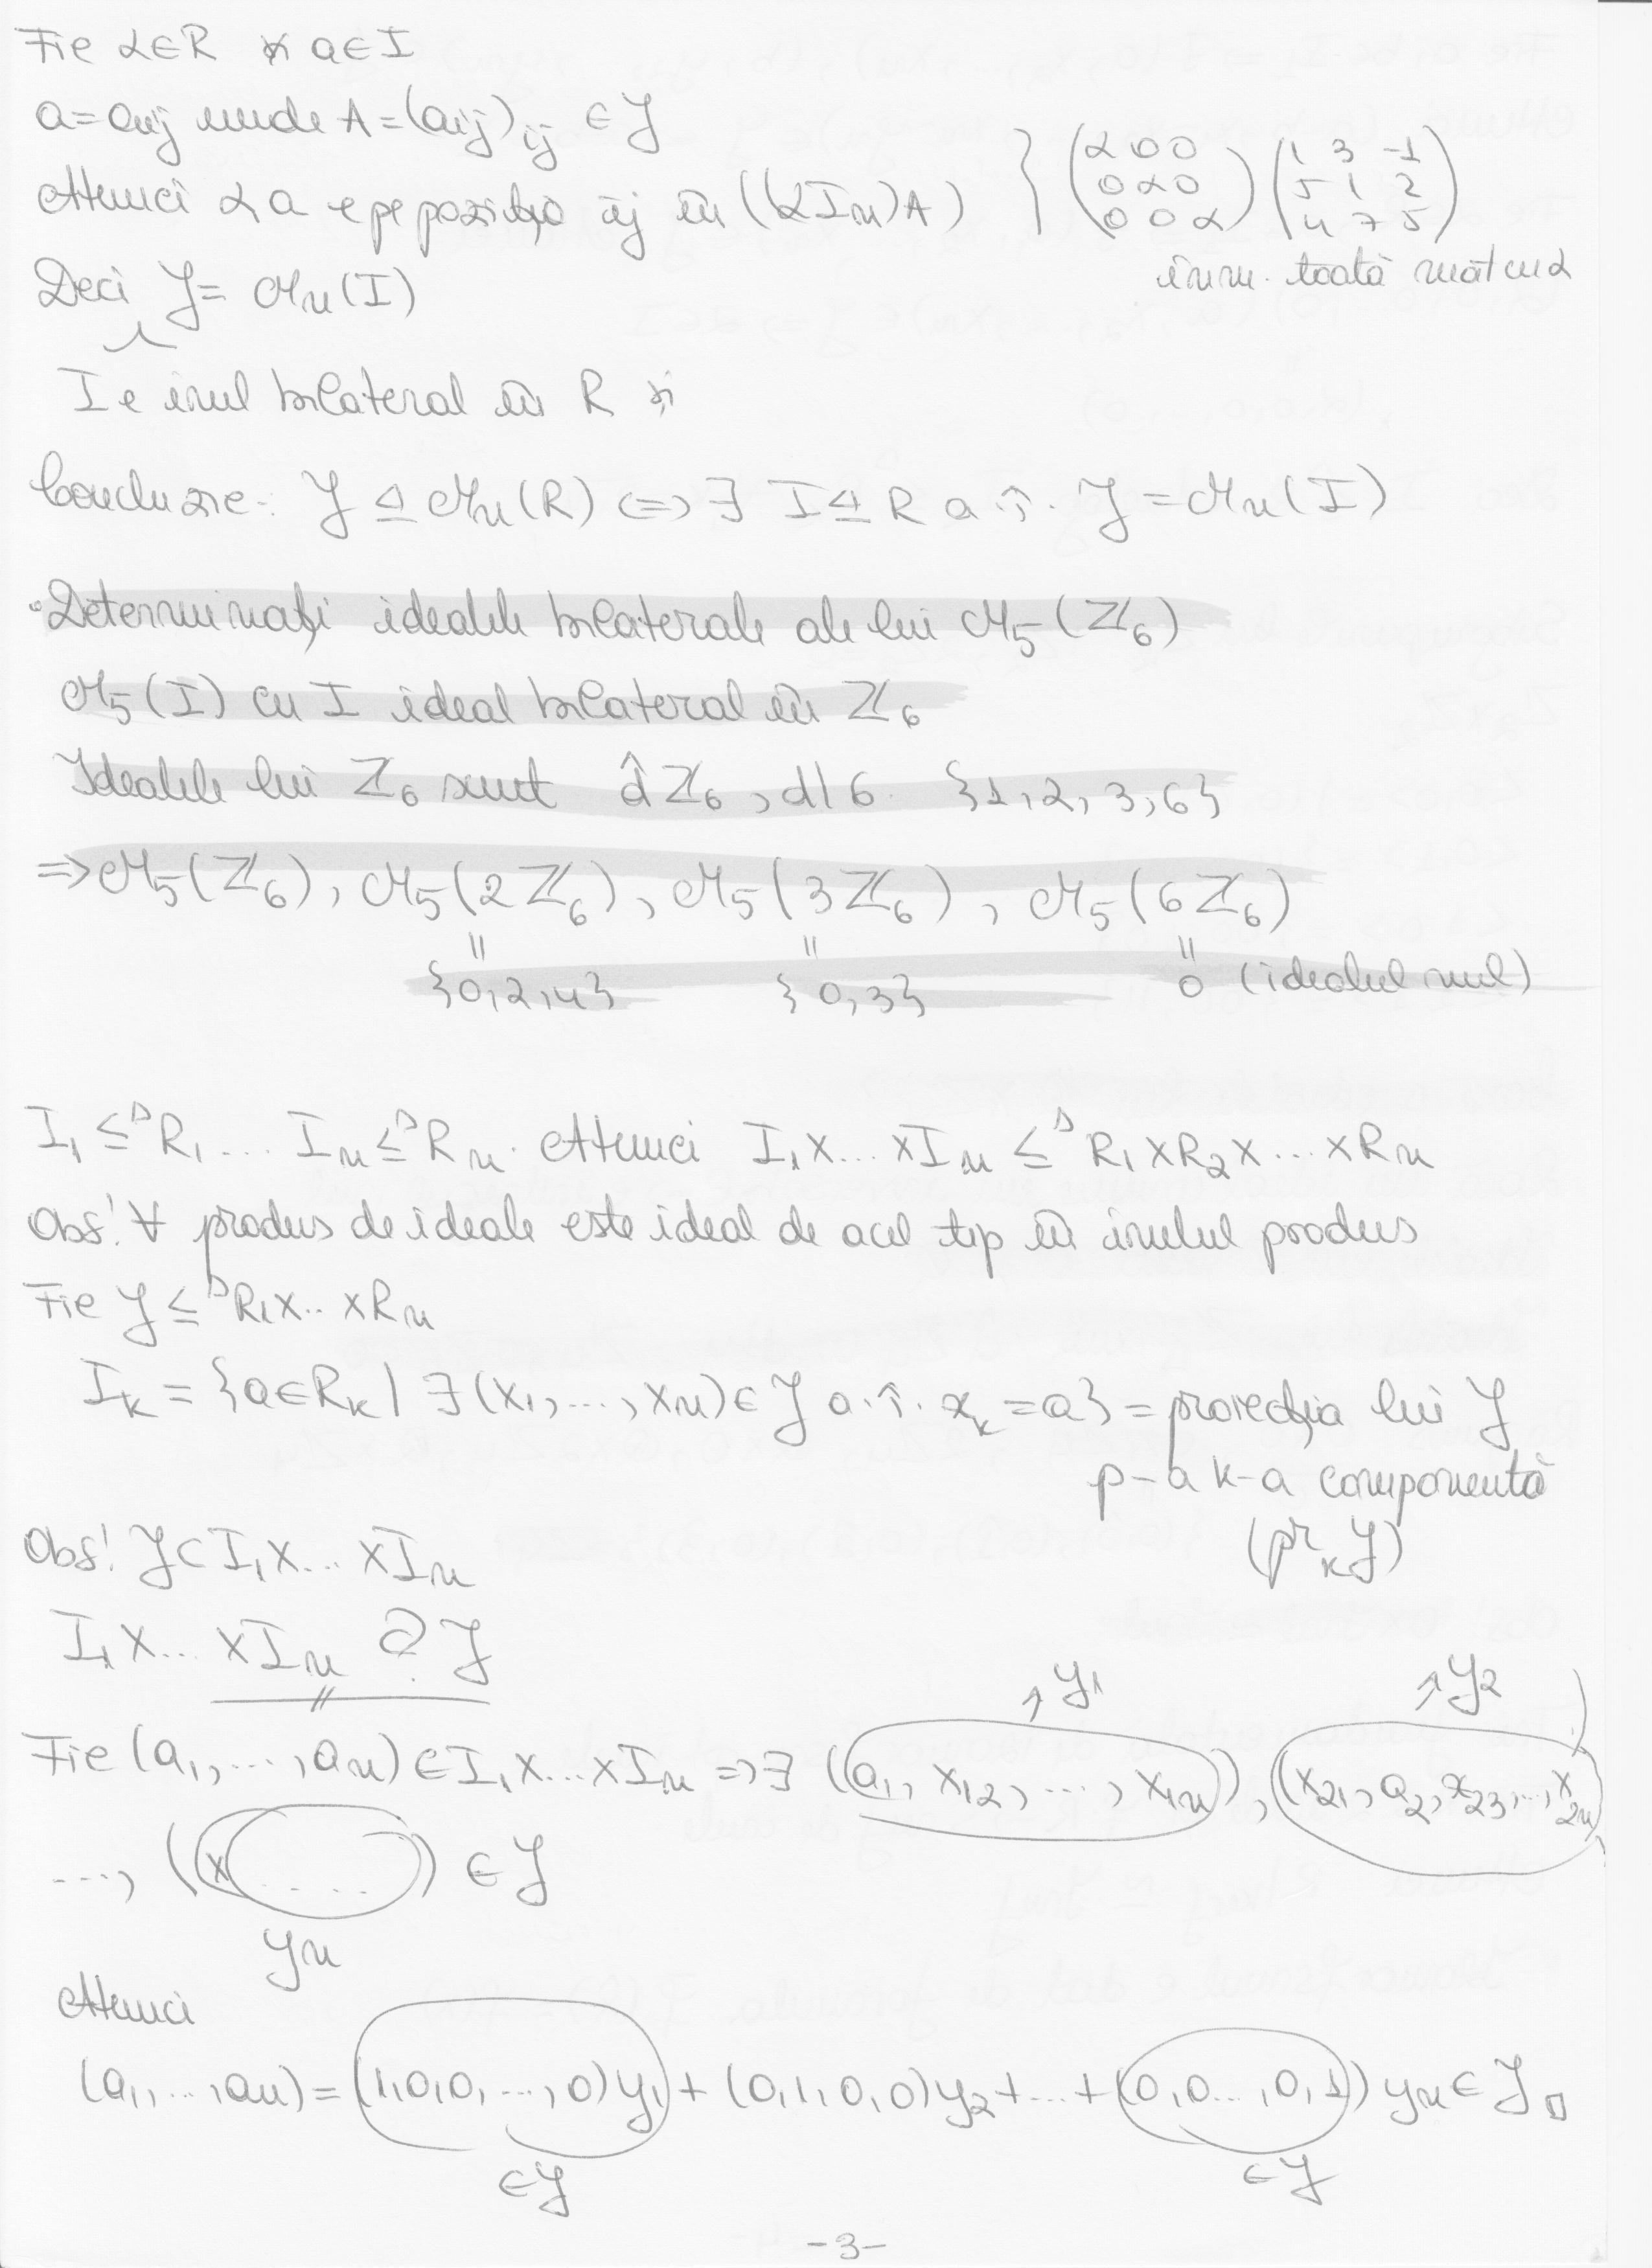 Fie α∈R și a∈I
a=aij unde A=(aij)ij ∈ J
Atunci αa e pe poziția ij în ((αIn)A) } (α 0 0 / 0 α 0 / 0 0 α) (1 3 -1 / 5 1 2 / 4 7 5)
înm. toată mat cu α
Deci J = Mn(I)
I e inel bilateral în R și
Concluzie: J ⊴ Mn(R) <=> ∃ I ⊴ R a.î. J = Mn(I)
• Determinați idealele bilaterale ale lui M5(Z6)
M5(I) cu I ideal bilateral în Z6
Idealele lui Z6 sunt d̂Z6, d|6 {1,2,3,6}
=> M5(Z6), M5(2Z6), M5(3Z6), M5(6Z6)
{0,2,4} {0,3} 0 (idealul nul)
I1 ≤ᴰ R1 ... In ≤ᴰ Rn. Atunci I1x...xIn ≤ᴰ R1xR2x...xRn
Obs! ∀ produs de ideale este ideal de acel tip în inelul produs
Fie J ≤ᴰ R1x..xRn
Ik = {a∈Rk | ∃(x1,...,xn)∈J a.î. xk=a} = proiecția lui J
p-a k-a componentă
(prk J)
Obs! J⊂I1x...xIn
I1x...xIn ⊇? J
=
Fie (a1,...,an)∈I1x...xIn => ∃ (a1, x12, ..., x1n), (x21, a2, x23,..., x2n)
→y1 →y2
..., (x ....) ∈ J
yn
Atunci
(a1,...,an)=(1,0,0,...,0)y1+(0,1,0,0)y2+...+(0,0...,0,1)yn∈J □
∈J ∈J
-3-